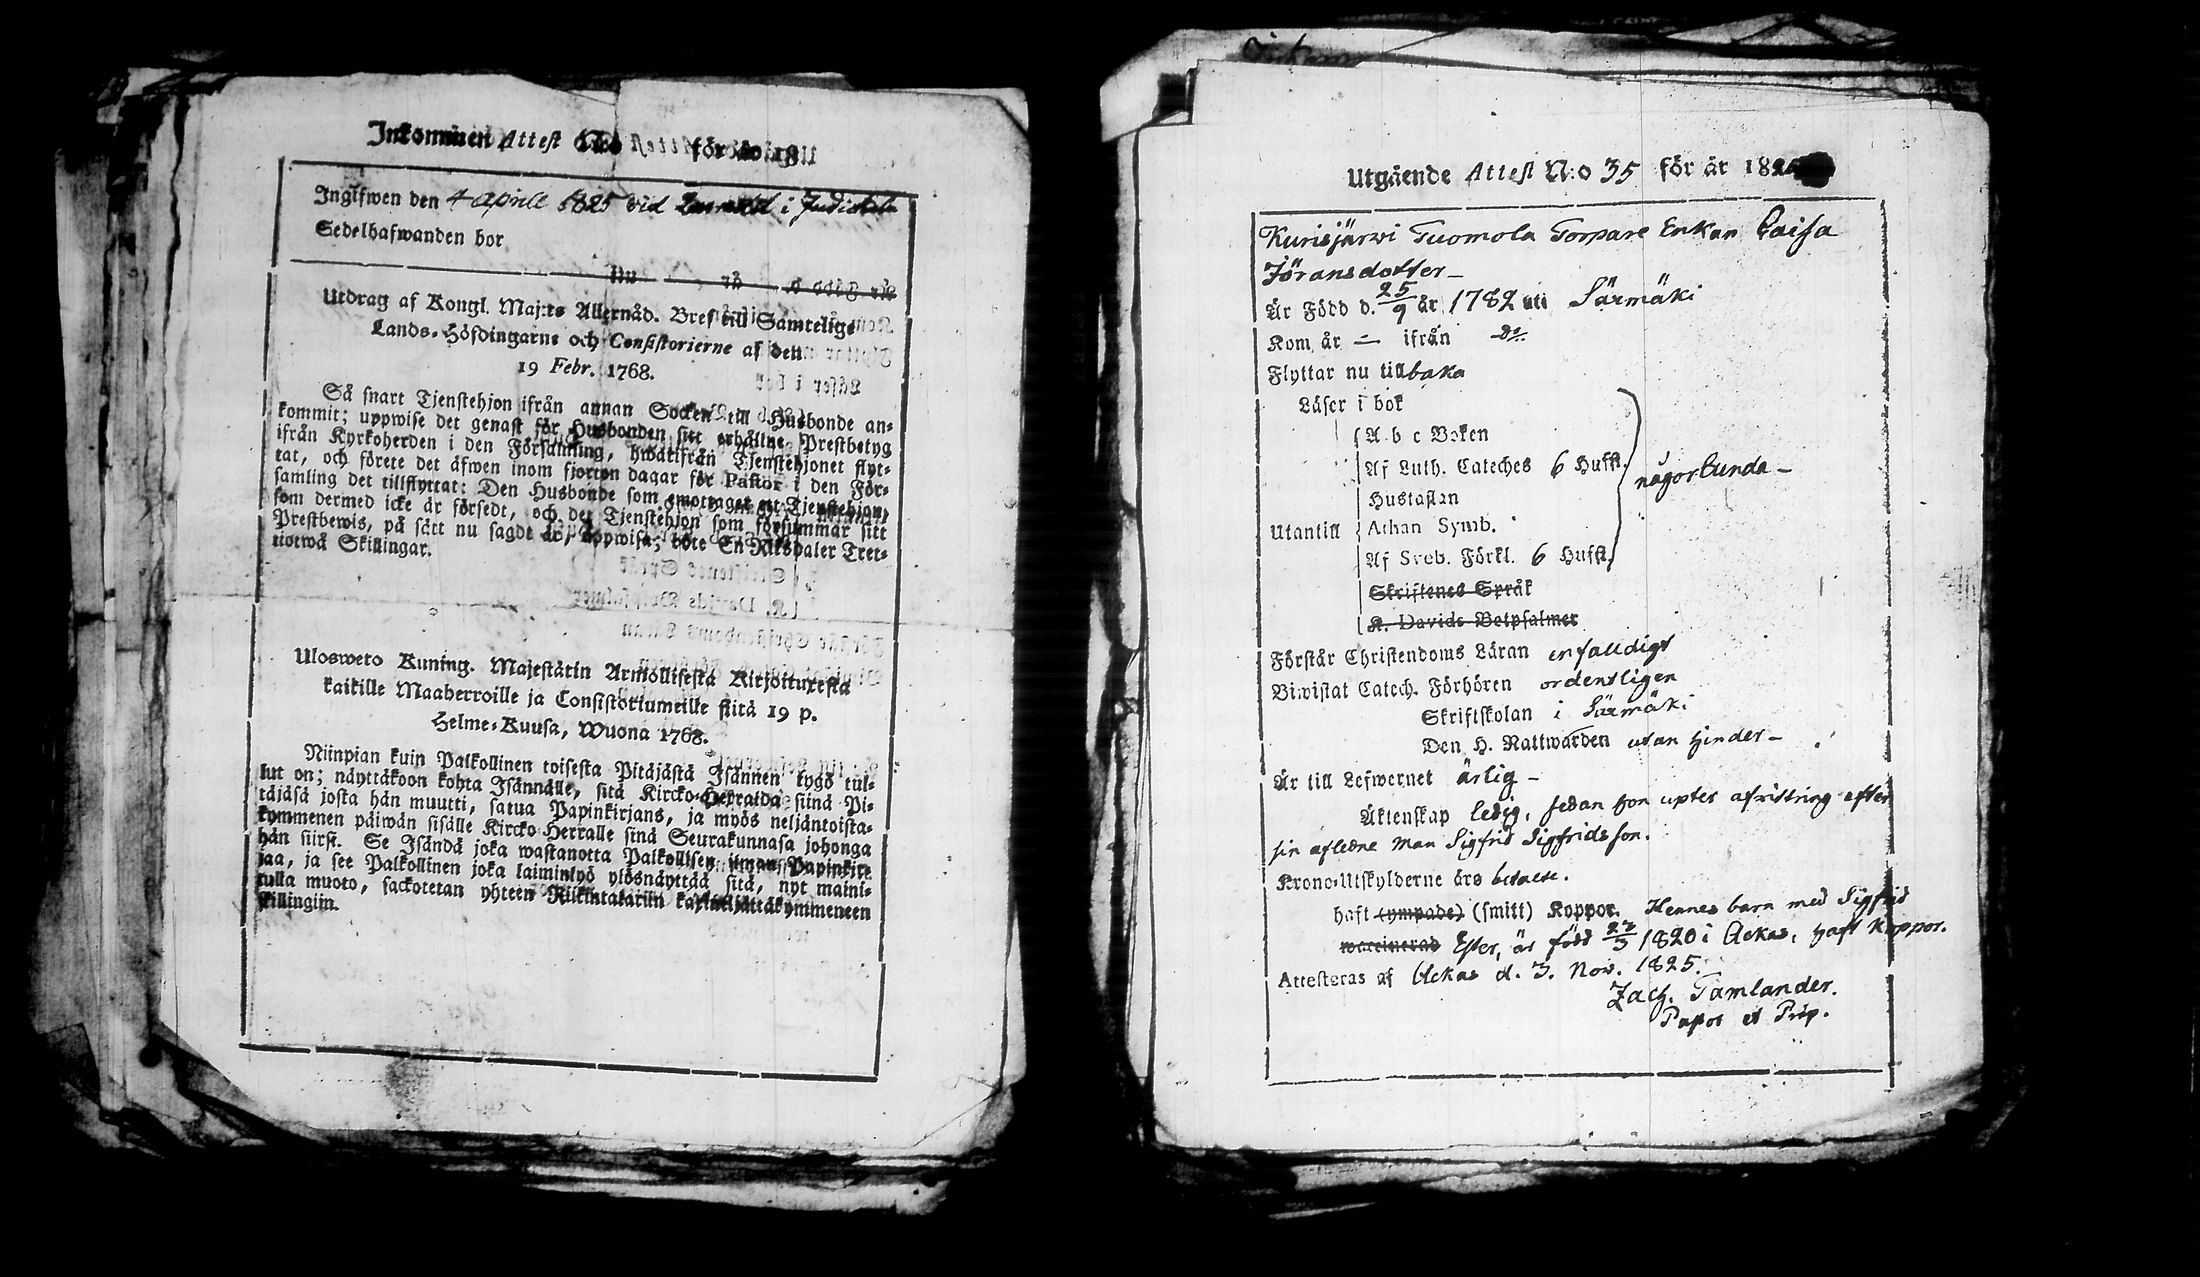 Inkommen Attest N:o för år 18
Inglfwen den 4 Aprill 1825 vid i
Sedelhafwanden bor
Utdrag af Kongl. Maj:ts Allernåd. Bref till Samtelige
Lands-Höfdingarne och Consistorierne af den
19 Febr. 1768.
Så snart Tjenstehjon ifrån annan Socken till Husbonde an-
kommit; uppwise det genast för Husbonden sitt erhållne Prestbetyg
ifrån Kyrkoherden i den Församling, hwarifrån Tjenstehjonet flyt-
tat, och förete det äfwen inom fjorton dagar för Pastor i den För-
samling det tillflyttat: Den Husbonde som emottaget ett Tjenstehjon,
som dermed icke är försedt, och det Tjenstehjon som försummar sitt
Prestbewis, på sätt nu sagdt är, uppwisa; böte En Riksdaler Tret-
tiotwå Skillingar.
Ulosweto Kuning. Majestätin Armollisesta Kirjoituxesta
kaikille Maaherroille ja Consistoriumeille siitä 19 p.
Helme-Kuusa, Wuona 1768.
Niinpian kuin Palkollinen toisesta Pitäjästä Isännen tygö tul-
lut on; näyttäkoon kohta Isännälle, sitä Kircko-Herralda siinä Pi-
täjäsä josta hän muutti, satua Papinkirjans, ja myös neljäntoista-
kymmenen päiwän sisälle Kircko-Herralle sinä Seurakunnasa johonga
hän siirst. Se Isändä joka wastanotta Palkollisen ilman Papinkir-
jaa, ja see Palkollinen joka laiminlyö ylösnäyttää sitä, nyt maini-
tulla muoto, sackotetan yhteen Riikintalariin ja kaxineljättäkymmeneen
skillingiin.
Utgående Attest N:o 35 för år 1825
Kurisjärwi Tuomola Torpare Enkan Caisa
Jöransdotter –
Är Född d. 25/9 år 1782 uti Särmäki
Kom år — ifrån d:o
Flyttar nu tillbaka
Läser i bok
A b c Boken
Af Luth. Cateches 6 Hufst.
någorlunda –
Hustaflan
Utantill Athan Symb.
Af Sveb. Förkl. 6 Hufst.
Skriftenes Språk
K. Davids Botpsalmer
Förstår Christendoms Läran enfalldigt
Biwistat Catech. Förhören ordentligen
Skriftskolan i Särmäki
Den H. Nattwarden utan hinder –
Är till Lefwernet ärlig –
Äktenskap ledig, sedan hon uptet afvittring efter
sin aflidne Man Sigfrid Sigfridsson.
Krono-Utskylderne äro betalte.
haft (ympade) (smitt) Koppor. Hennes barn med Sigfrid
waccinerad Ester, är född 22/3 1820 i Ackas, haft Koppor.
Attesteras af Ackas d. 3. Nov. 1825.
Zach. Tamlander.
Past et Præp.